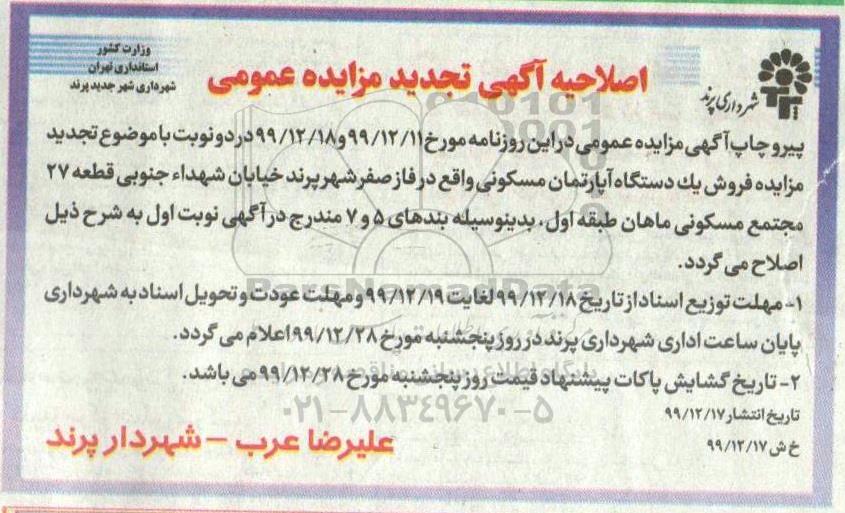 وزارت کشور
استانداری تهران
شهرداری شهر جدید پرند
شهرداری پرند
اصلاحیه آگهی تجدید مزایده عمومی
پیرو چاپ آگهی مزایده عمومی در این روزنامه مورخ ۹۹/۱۲/۱۱ و ۹۹/۱۲/۱۸ در دو نوبت با موضوع تجدید
مزایده فروش یك دستگاه آپارتمان مسکونی واقع در فاز صفر شهر پرند خیابان شهداء جنوبی قطعه ۲۷
مجتمع مسکونی ماهان طبقه اول، بدینوسیله بندهای ۵ و ۷ مندرج در آگهی نوبت اول به شرح ذیل
اصلاح می گردد.
۱- مهلت توزیع اسناد از تاریخ ۹۹/۱۲/۱۸ لغایت ۹۹/۱۲/۱۹ و مهلت عودت و تحویل اسناد به شهرداری
پایان ساعت اداری شهرداری پرند در روز پنجشنبه مورخ ۹۹/۱۲/۲۸ اعلام می گردد.
۲- تاریخ گشایش پاکات پیشنهاد قیمت روز پنجشنبه مورخ ۹۹/۱۲/۲۸ می باشد.
تاریخ انتشار ۹۹/۱۲/۱۷
خ ش ۹۹/۱۲/۱۷
علیرضا عرب – شهردار پرند
ParsNamadData
۰۲۱-۸۸۳۴۹۶۷۰-۵